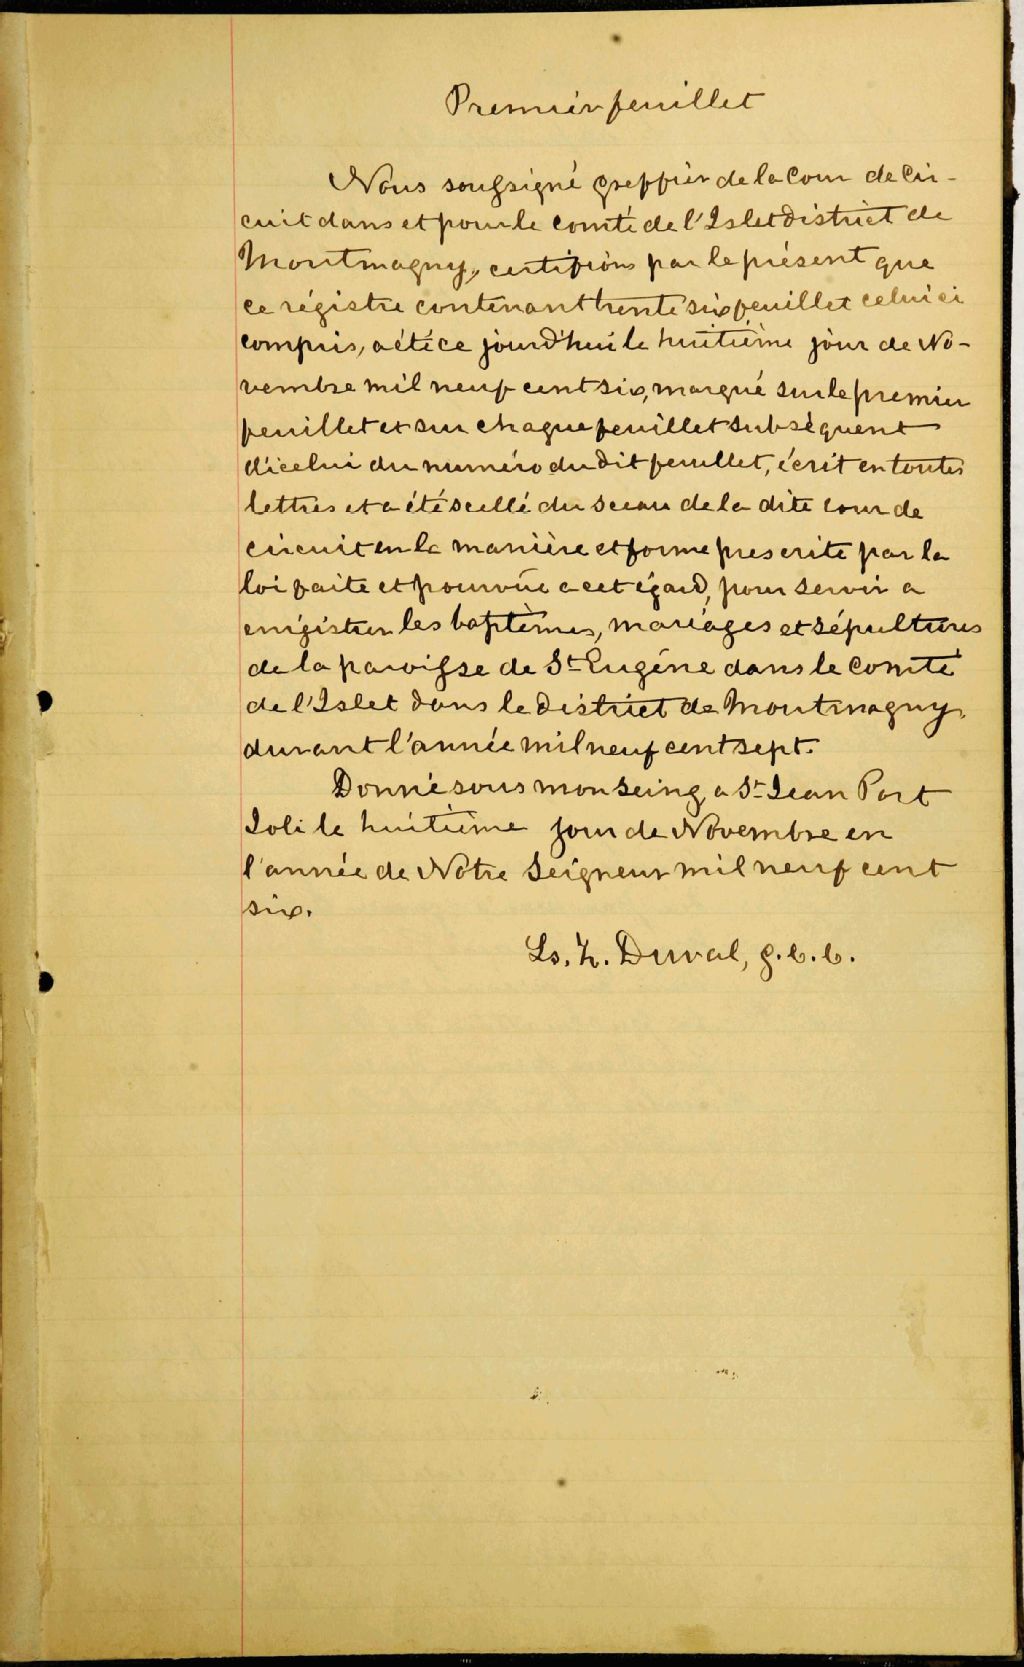 Premier feuillet
Nous soussigné greffier de la Cour de Cir-
cuit dans et pour le comté de l'Islet district de
Montmagny, certifions par le présent que
ce régistre contenant trente six feuillet celui ci
compris, a été ce jourd'hui le huitième jour de No-
vembre mil neuf cent six, marqué sur le premier
feuillet et sur chaque feuillet subséquent
d'icelui du numéro du dit feuillet, écrit en toutes
lettres et a été scellé du sceau de la dite cour de
circuit en la manière et forme prescrite par la
loi faite et pourvue a cet égard, pour servir a
enrégistrer les baptèmes, mariages et sépultures
de la paroisse de St Eugène dans le Comté
de l'Islet dans le district de Montmagny,
durant l'année mil neuf cent sept.
Donné sous mon Seing a St Jean Port
Joli le huitième jour de Novembre en
l'année de Notre Seigneur mil neuf cent
six.
Ls. Z. Duval, g.c.c.